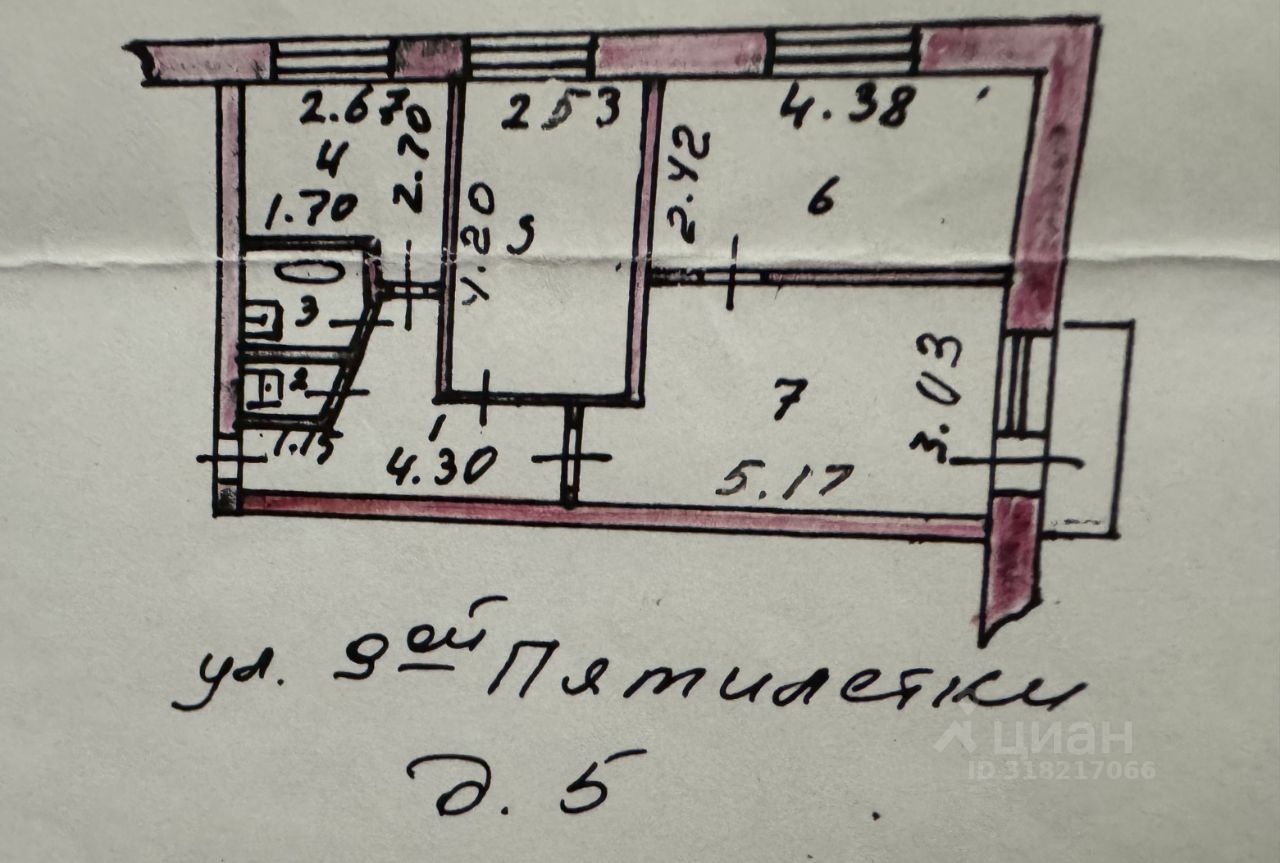 2.67
2.70
253
4.38
4
1.70
4.20
5
2.42
6
3
2
1
1.15
4.30
7
3.03
5.17
ул. 9ей Пятилетки
д. 5
циан
ID 318217066